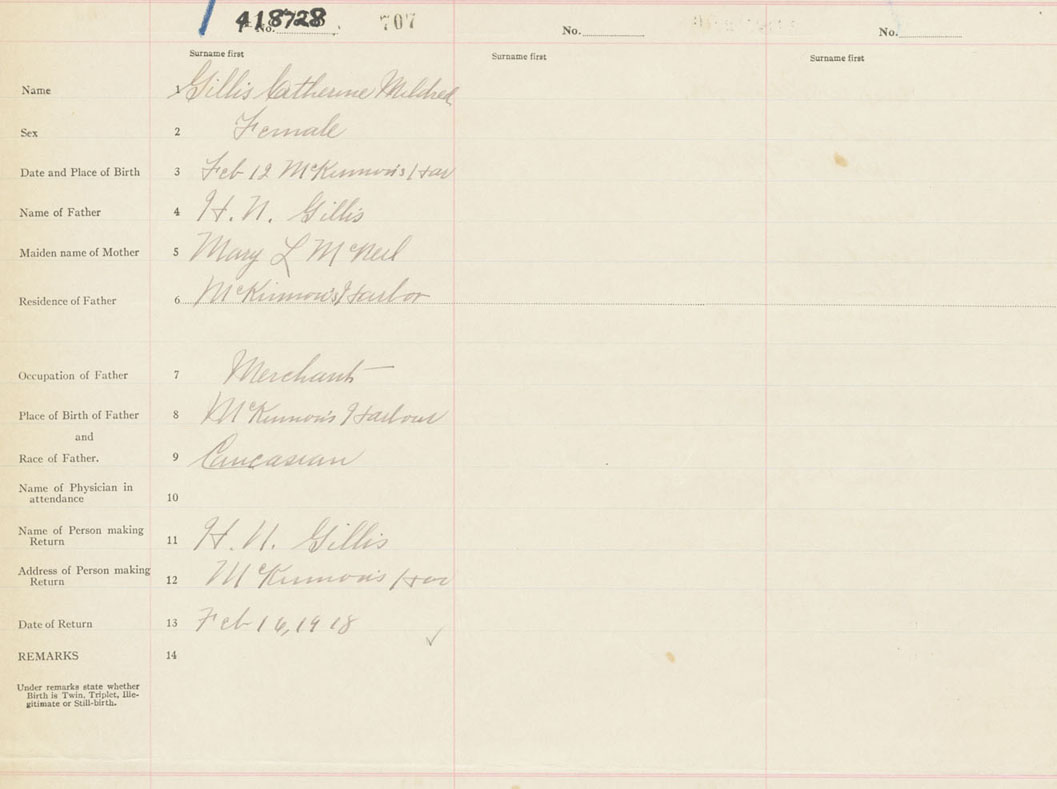 418728
No. 707 No. No.
Surname first Surname first Surname first
Name 1 Gillis Catherine Mildred
Sex 2 Female
Date and Place of Birth 3 Feb 12 McKinnon's Har
Name of Father 4 H. N. Gillis
Maiden name of Mother 5 Mary L McNeil
Residence of Father 6 McKinnon's Harbor
Occupation of Father 7 Merchant
Place of Birth of Father 8 McKinnon's Harbour
and
Race of Father. 9 Caucasian
Name of Physician in
attendance 10
Name of Person making
Return 11 H. N. Gillis
Address of Person making
Return 12 McKinnon's Har
Date of Return 13 Feb 16, 1918
REMARKS 14
Under remarks state whether
Birth is Twin, Triplet, Ille-
gitimate or Still-birth.